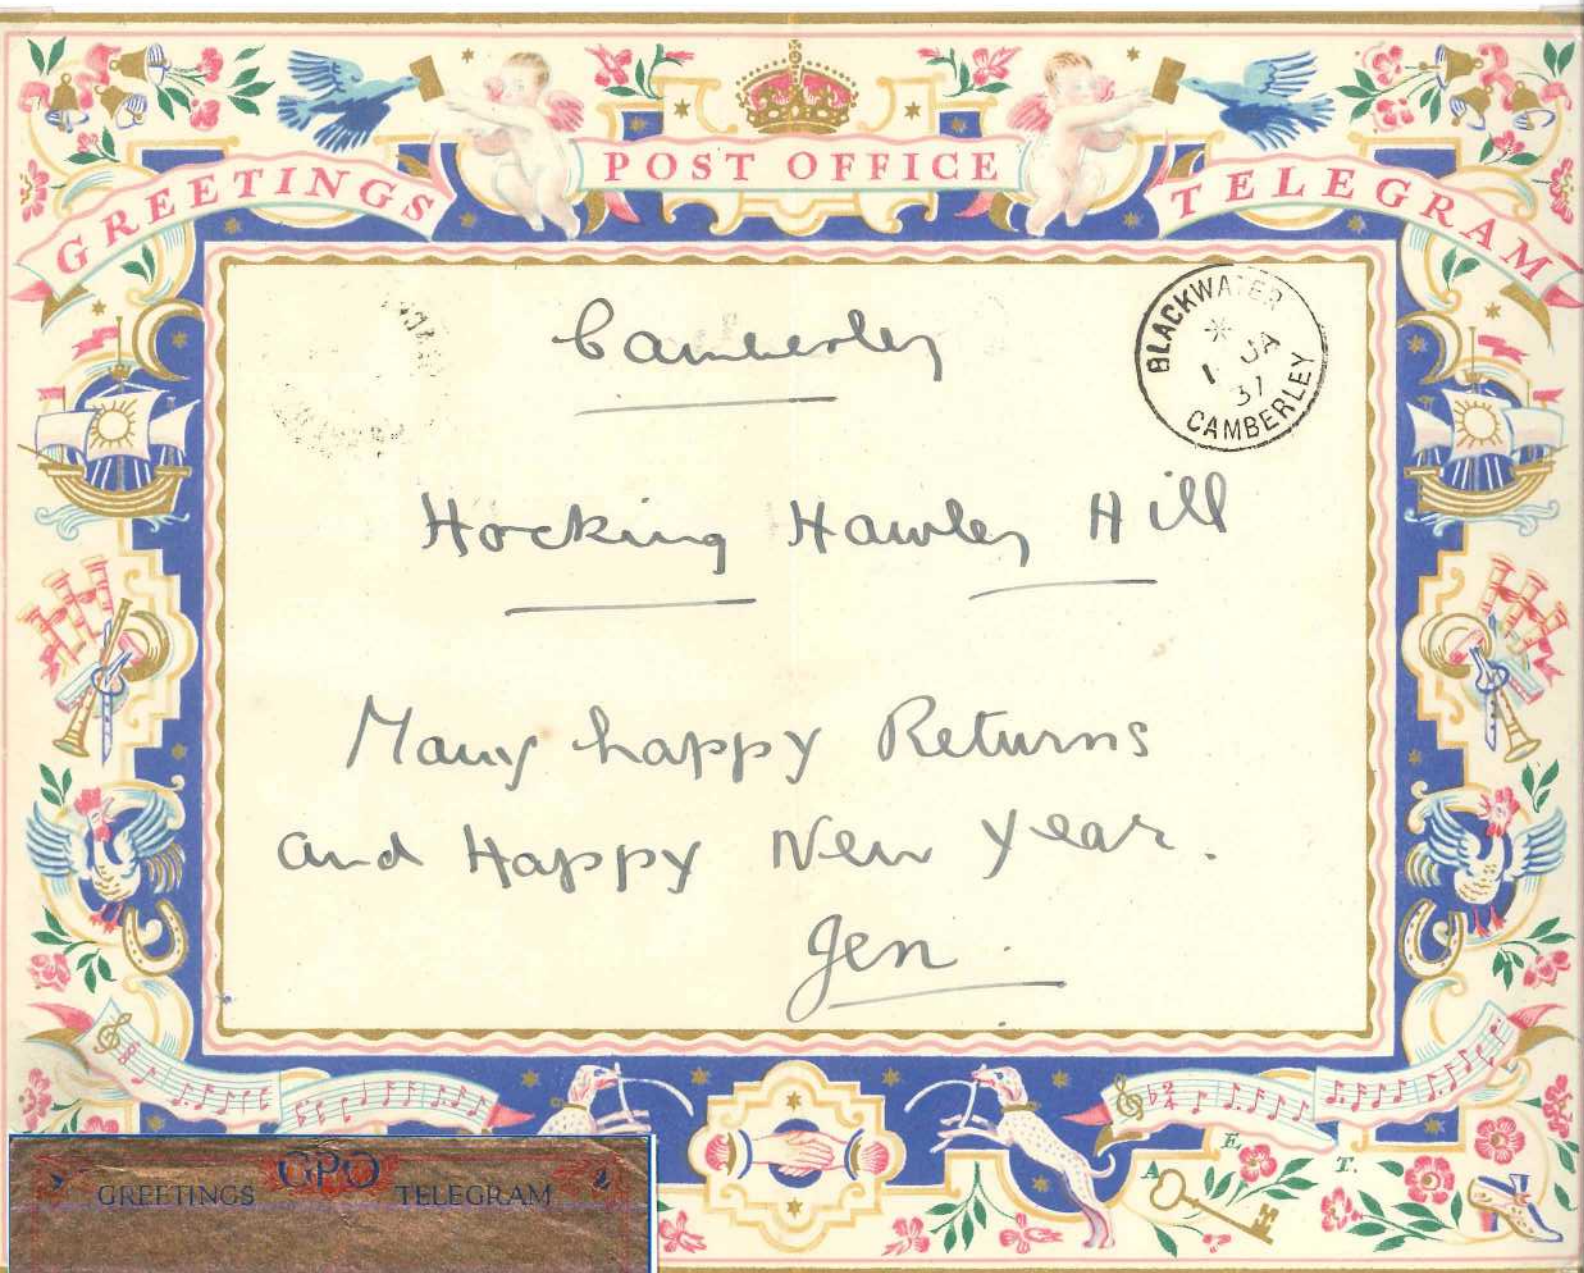 GREETINGS POST OFFICE TELEGRAM
Camberley
BLACKWATER
1 JA
37
CAMBERLEY
Hocking Hawley Hill
Many happy Returns
and Happy New Year.
Jen.
A. E. T.
GPO
GREETINGS TELEGRAM